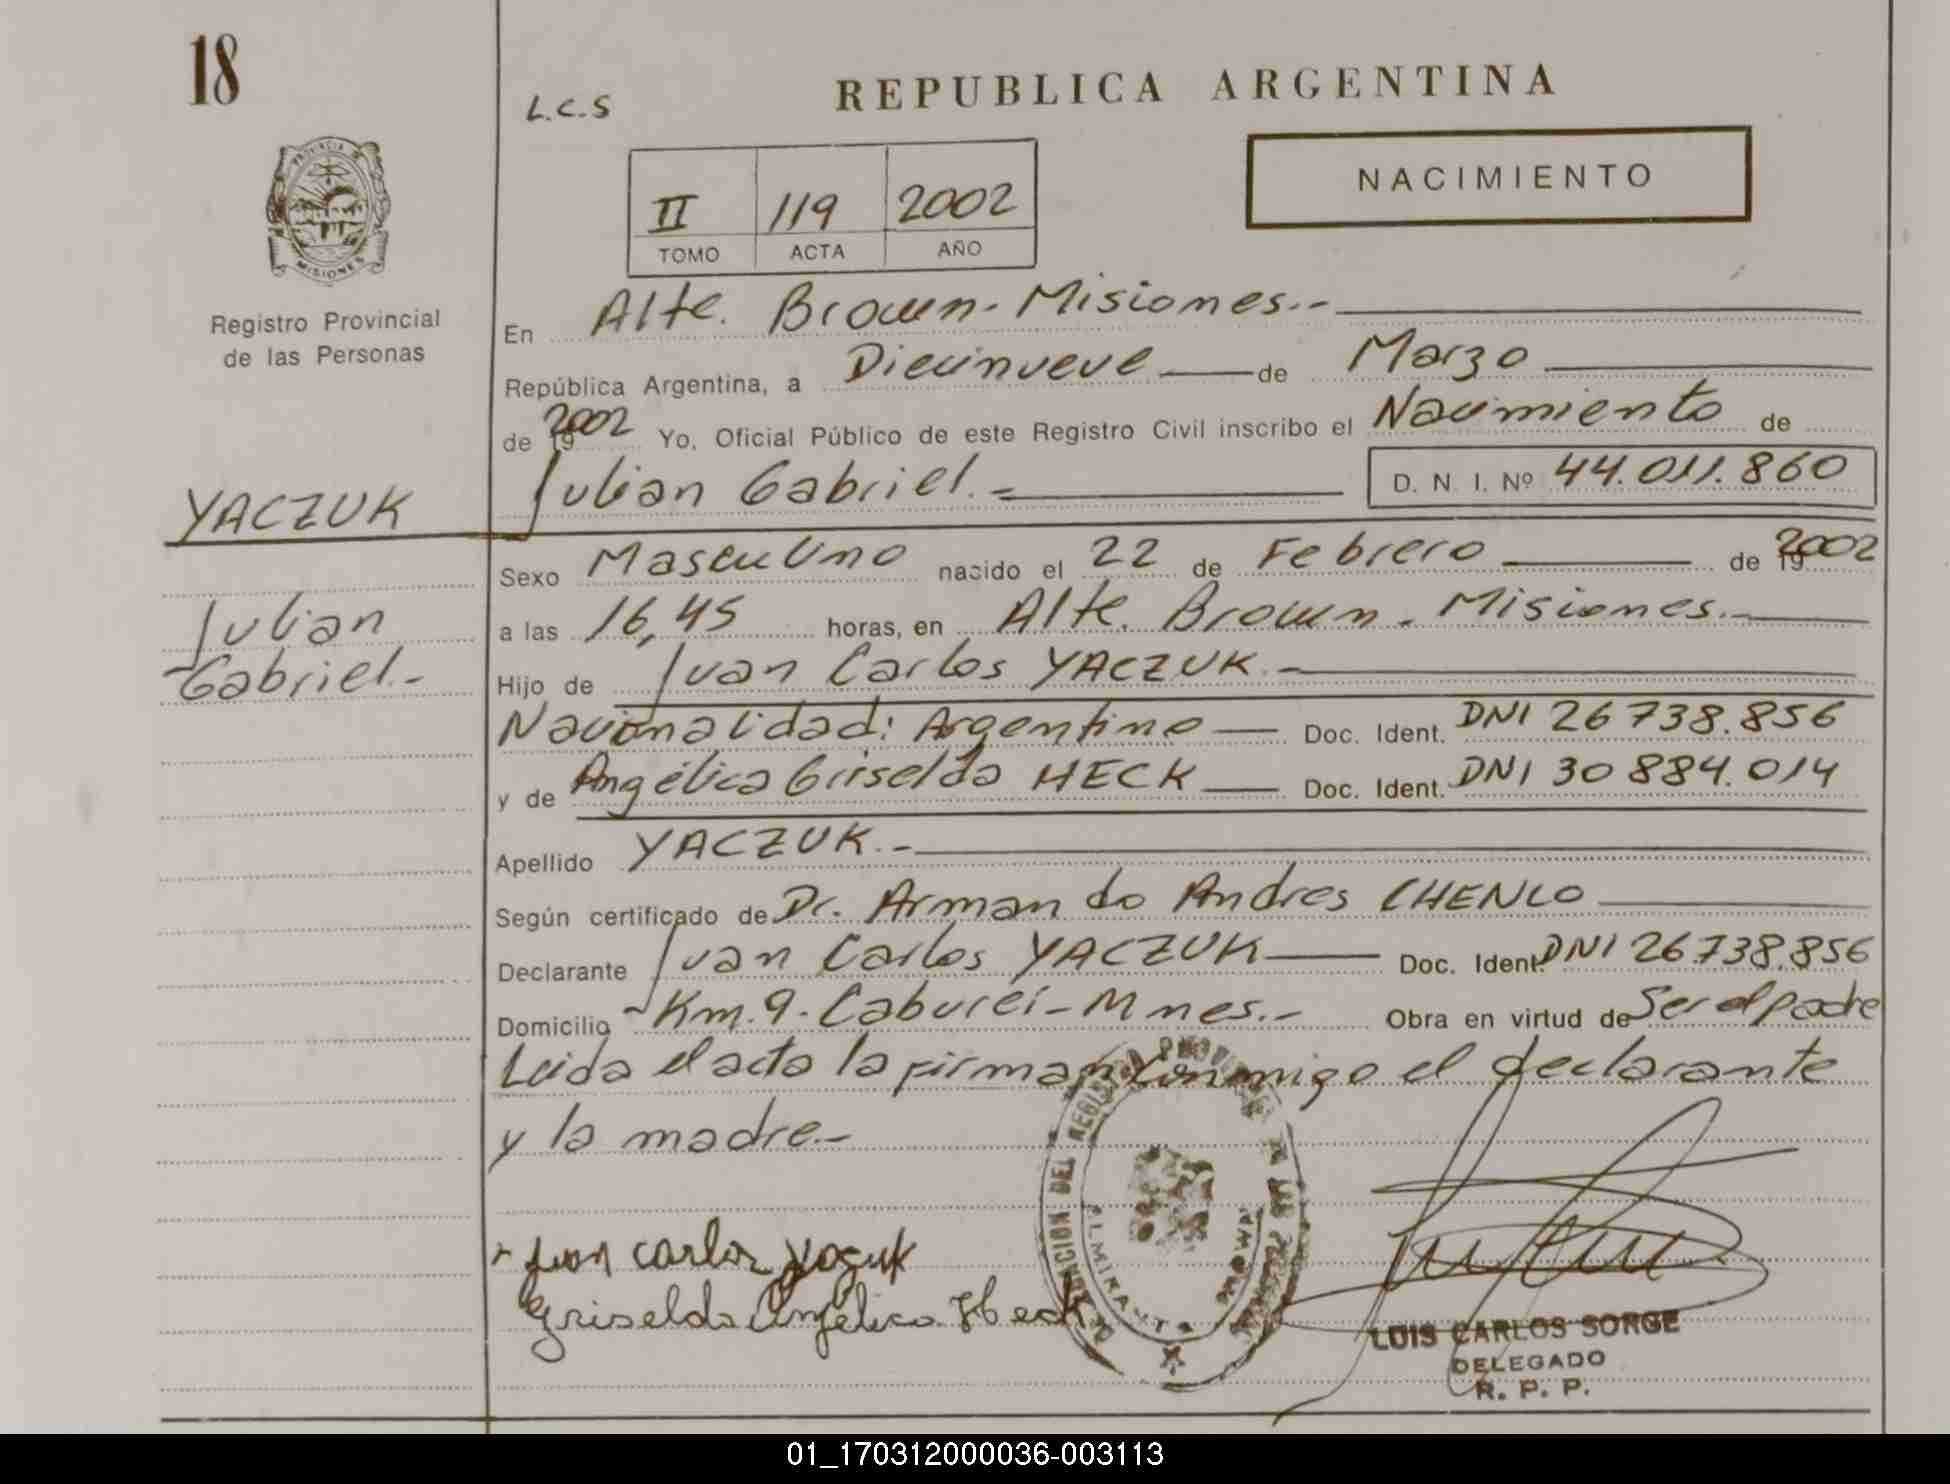 18
L.C.S
REPUBLICA ARGENTINA
NACIMIENTO
II 119 2002
TOMO ACTA AÑO
PROVINCIA DE
MISIONES
Registro Provincial
de las Personas
En Alte. Brown - Misiones.-
República Argentina, a Diecinueve de Marzo
de 19 2002 Yo, Oficial Público de este Registro Civil inscribo el Nacimiento de
Julian Gabriel.- D. N. I. Nº 44.011.860
YACZUK
Julian
Gabriel.-
Sexo Masculino nacido el 22 de Febrero de 19 2002
a las 16,45 horas, en Alte. Brown - Misiones.-
Hijo de Juan Carlos YACZUK.-
Nacionalidad: Argentino Doc. Ident. DNI 26738.856
y de Angélica Griselda HECK Doc. Ident. DNI 30884.014
Apellido YACZUK.-
Según certificado de Dr. Armando Andres CHENLO
Declarante Juan Carlos YACZUK Doc. Ident. DNI 26.738.856
Domicilio Km. 9 - Cabureí - Mnes.- Obra en virtud de Ser el padre
Leida el acta la firman conmigo el declarante
y la madre.-
Juan carlos Yaczuk
Griselda Angélica Heck
LUIS CARLOS SORGE
DELEGADO
R. P. P.
01_170312000036-003113